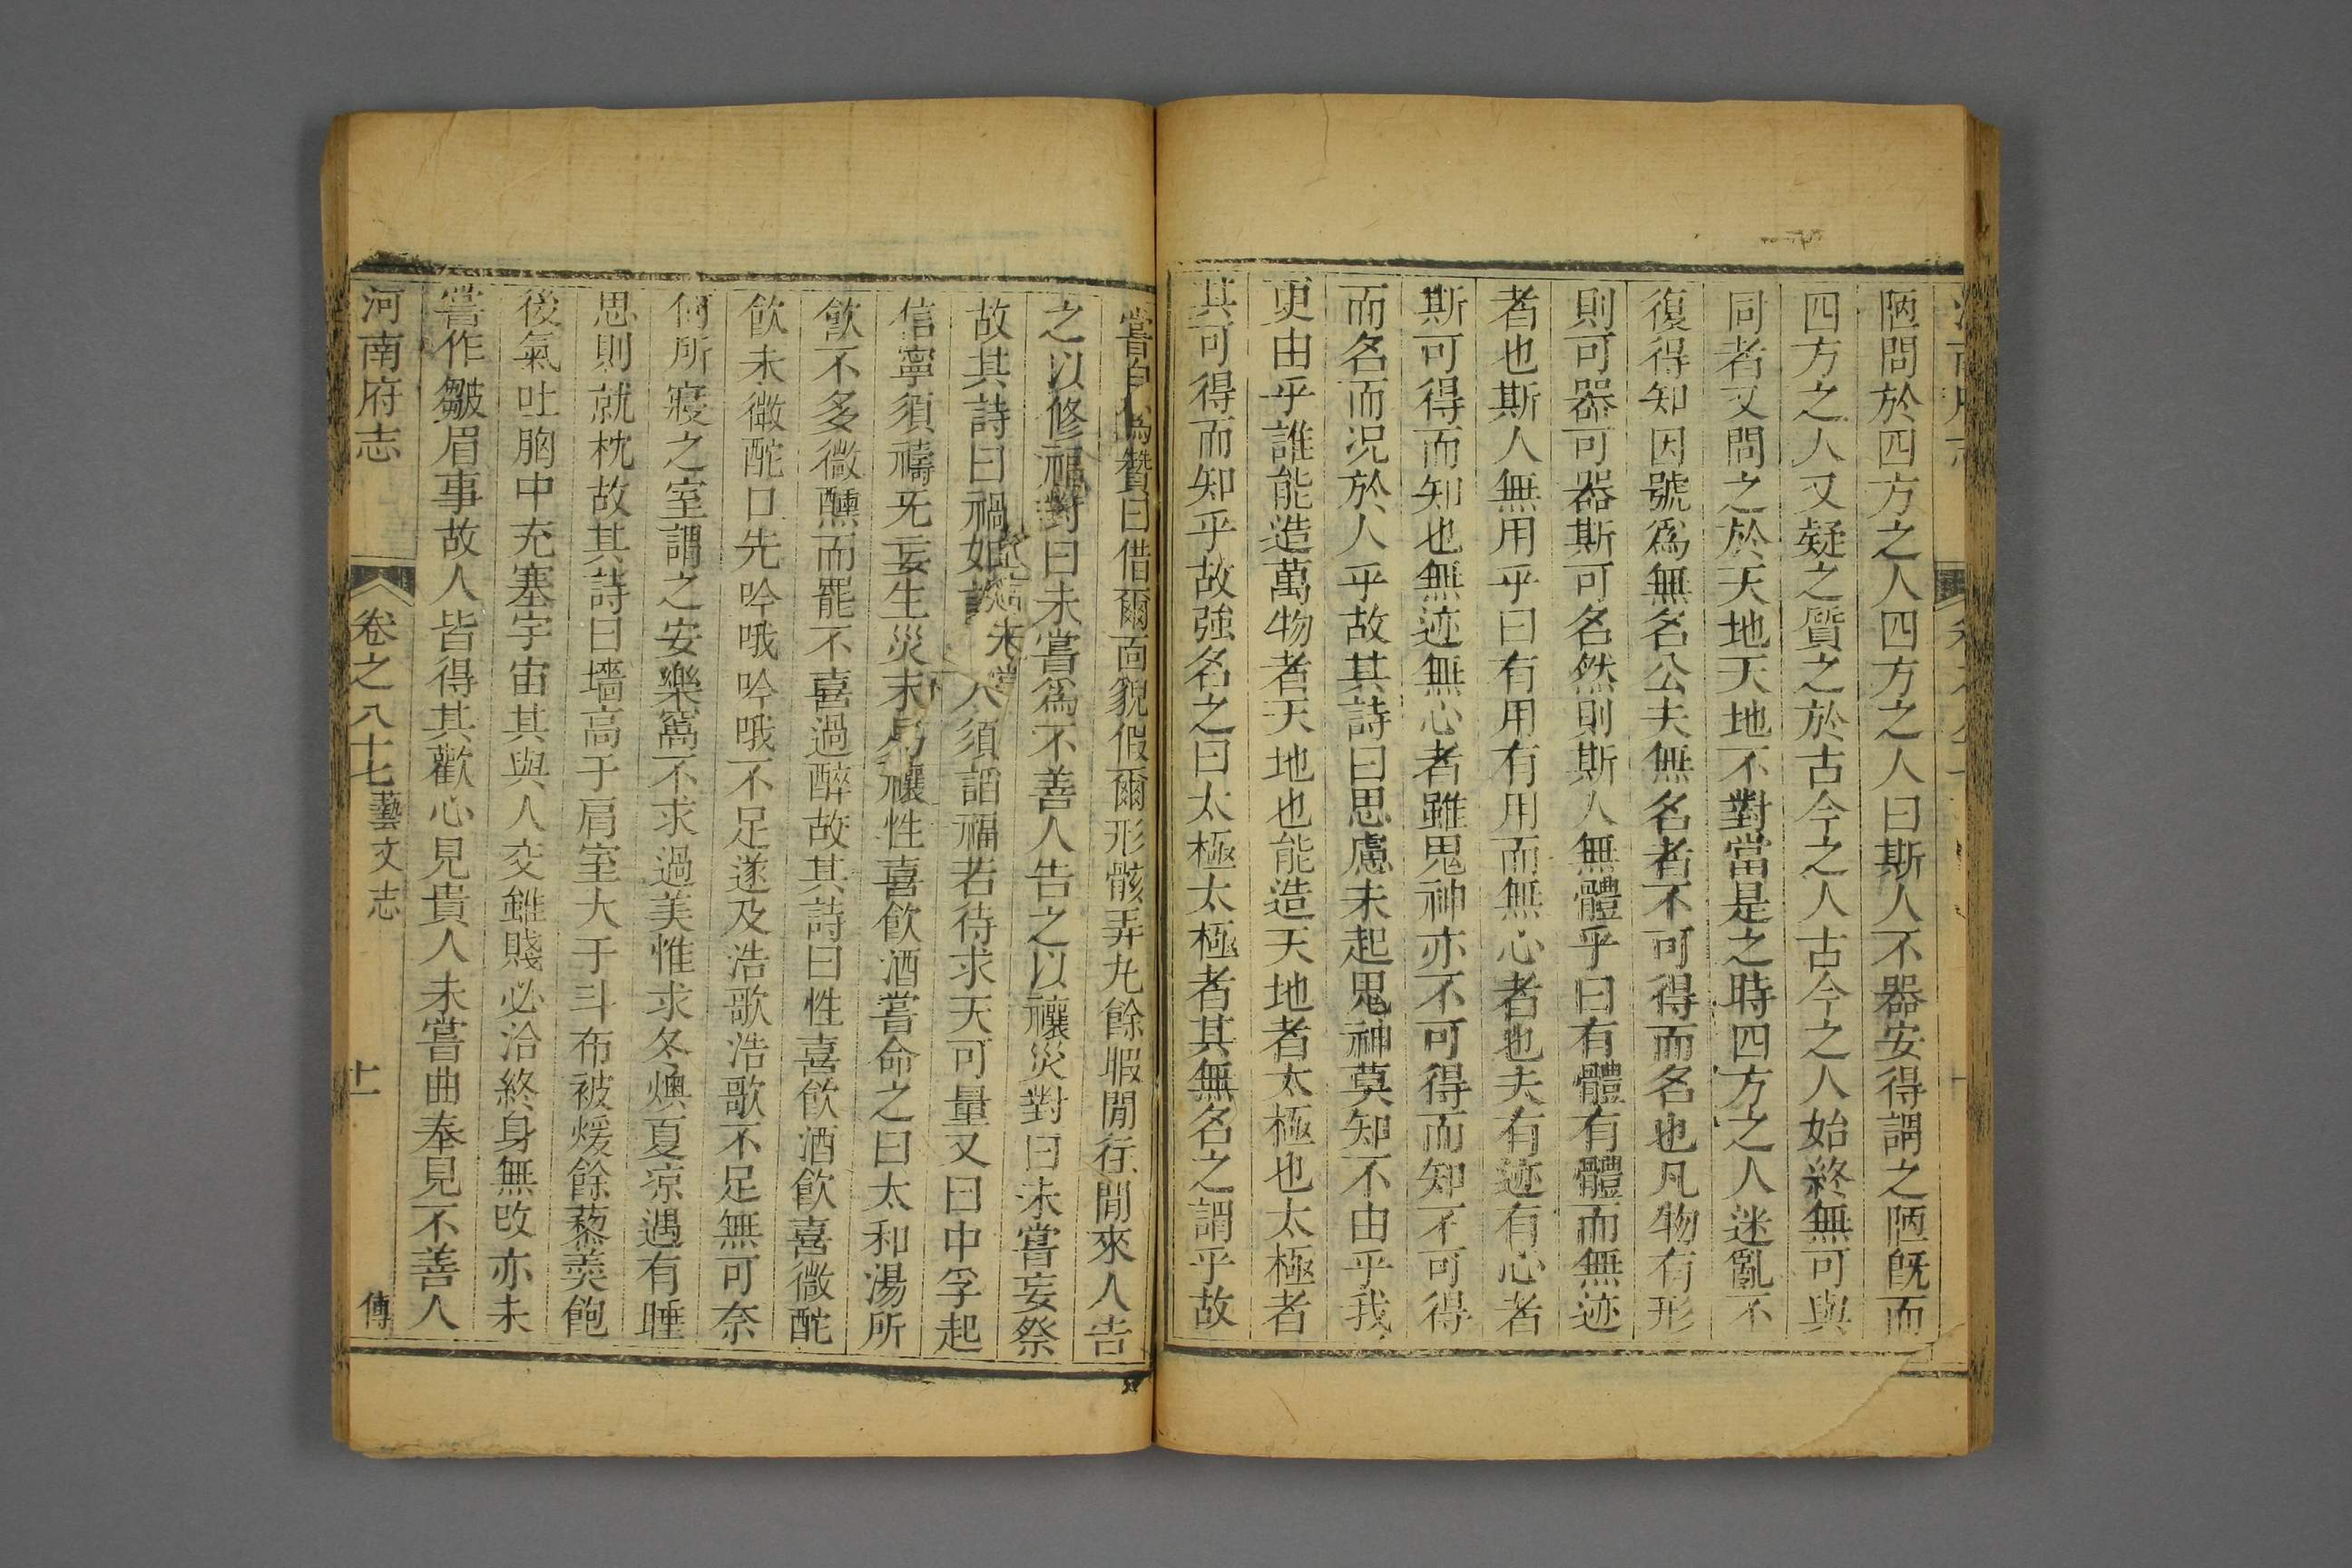 陋問於四方之人四方之人曰斯人不器安得謂之陋旣而
四方之人又疑之質之於古今之人古今之人始終無可與
同者又問之於天地天地不對當是之時四方之人迷亂不
復得知因號爲無名公夫無名者不可得而名也凡物有形
則可器可器斯可名然則斯人無體乎曰有體有體而無迹
者也斯人無用乎曰有用有用而無心者也夫有迹有心者
斯可得而知也無迹無心者雖鬼神亦不可得而知不可得
而名而况於人乎故其詩曰思慮未起鬼神莫知不由乎我
更由乎誰能造萬物者天地也能造天地者太極也太極者
其可得而知乎故強名之曰太極太極者其無名之謂乎故
嘗自爲贊曰借爾面貌假爾形骸弄丸餘暇閒行閒來人告
之以修福對曰未嘗爲不善人告之以禳災對曰未嘗妄祭
故其詩曰禍如 人須諂福若待求天可量又曰中孚起
信寧須禱无妄生災未 禳性喜飲酒嘗命之曰太和湯所
飲不多微醺而罷不喜過醉故其詩曰性喜飲酒飲喜微酡
飲未微酡口先吟哦吟哦不足遂及浩歌浩歌不足無可奈
何所寢之室謂之安樂窩不求過美惟求冬燠夏凉遇有睡
思則就枕故其詩曰墻高于肩室大于斗布被煖餘藜羹飽
後氣吐胸中充塞宇宙其與人交雖賤必洽終身無改亦未
嘗作皺眉事故人皆得其歡心見貴人未嘗曲奉見不善人
河南府志 卷之八十七藝文志 十一 傳